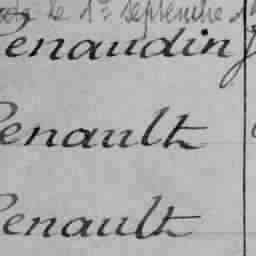 le 1er septembre
Renaudin
Renault
Renault